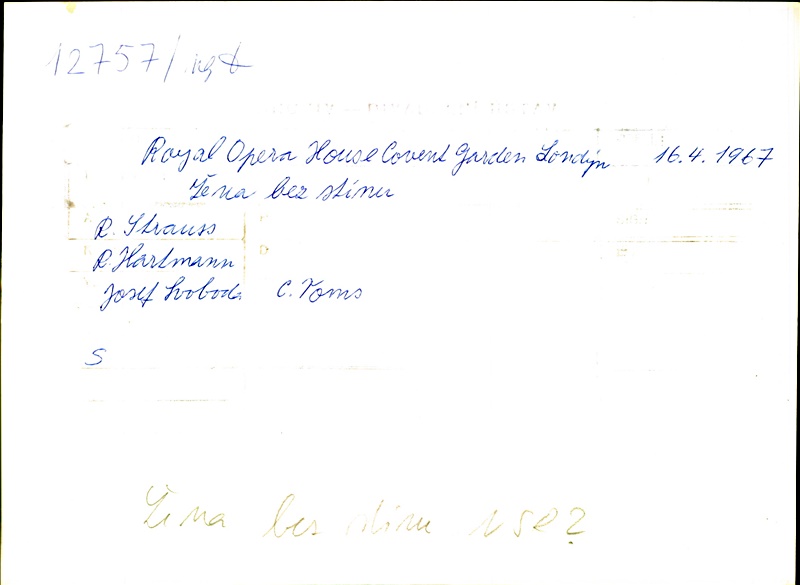 12757/neg
Royal Opera House Covent Garden Londýn 16.4.1967
Žena bez stínu
R. Strauss
R. Hartmann
Josef Svoboda C. Toms
S
Žena bez stínu